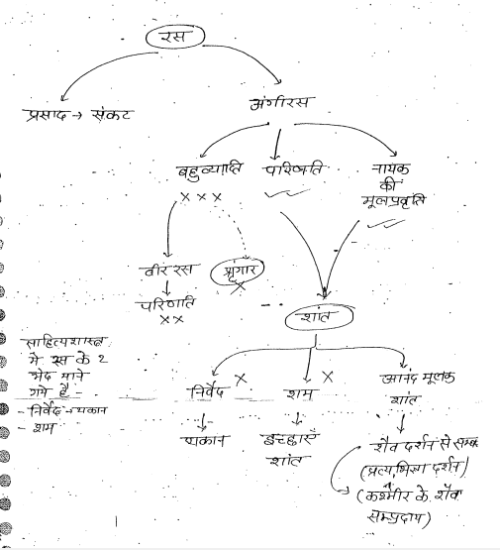 रस
प्रसाद → संकट
अंगीरस
बहुव्याप्ति
परिणति
नायक
की
मूलप्रवृति
x x x
वीर रस
श्रृंगार
x
परिणति
x x
शांत
साहित्यशास्त्र
मे रस के 2
भेद माने
गये हैं -
- निर्वेद → थकान
- शम
निर्वेद x
शम x
आनंद मूलक
शांत
थकान
इच्छाएँ
शांत
शैव दर्शन से सम्ब
(प्रत्यभिज्ञा दर्शन)
(कश्मीर के शैव
सम्प्रदाय)